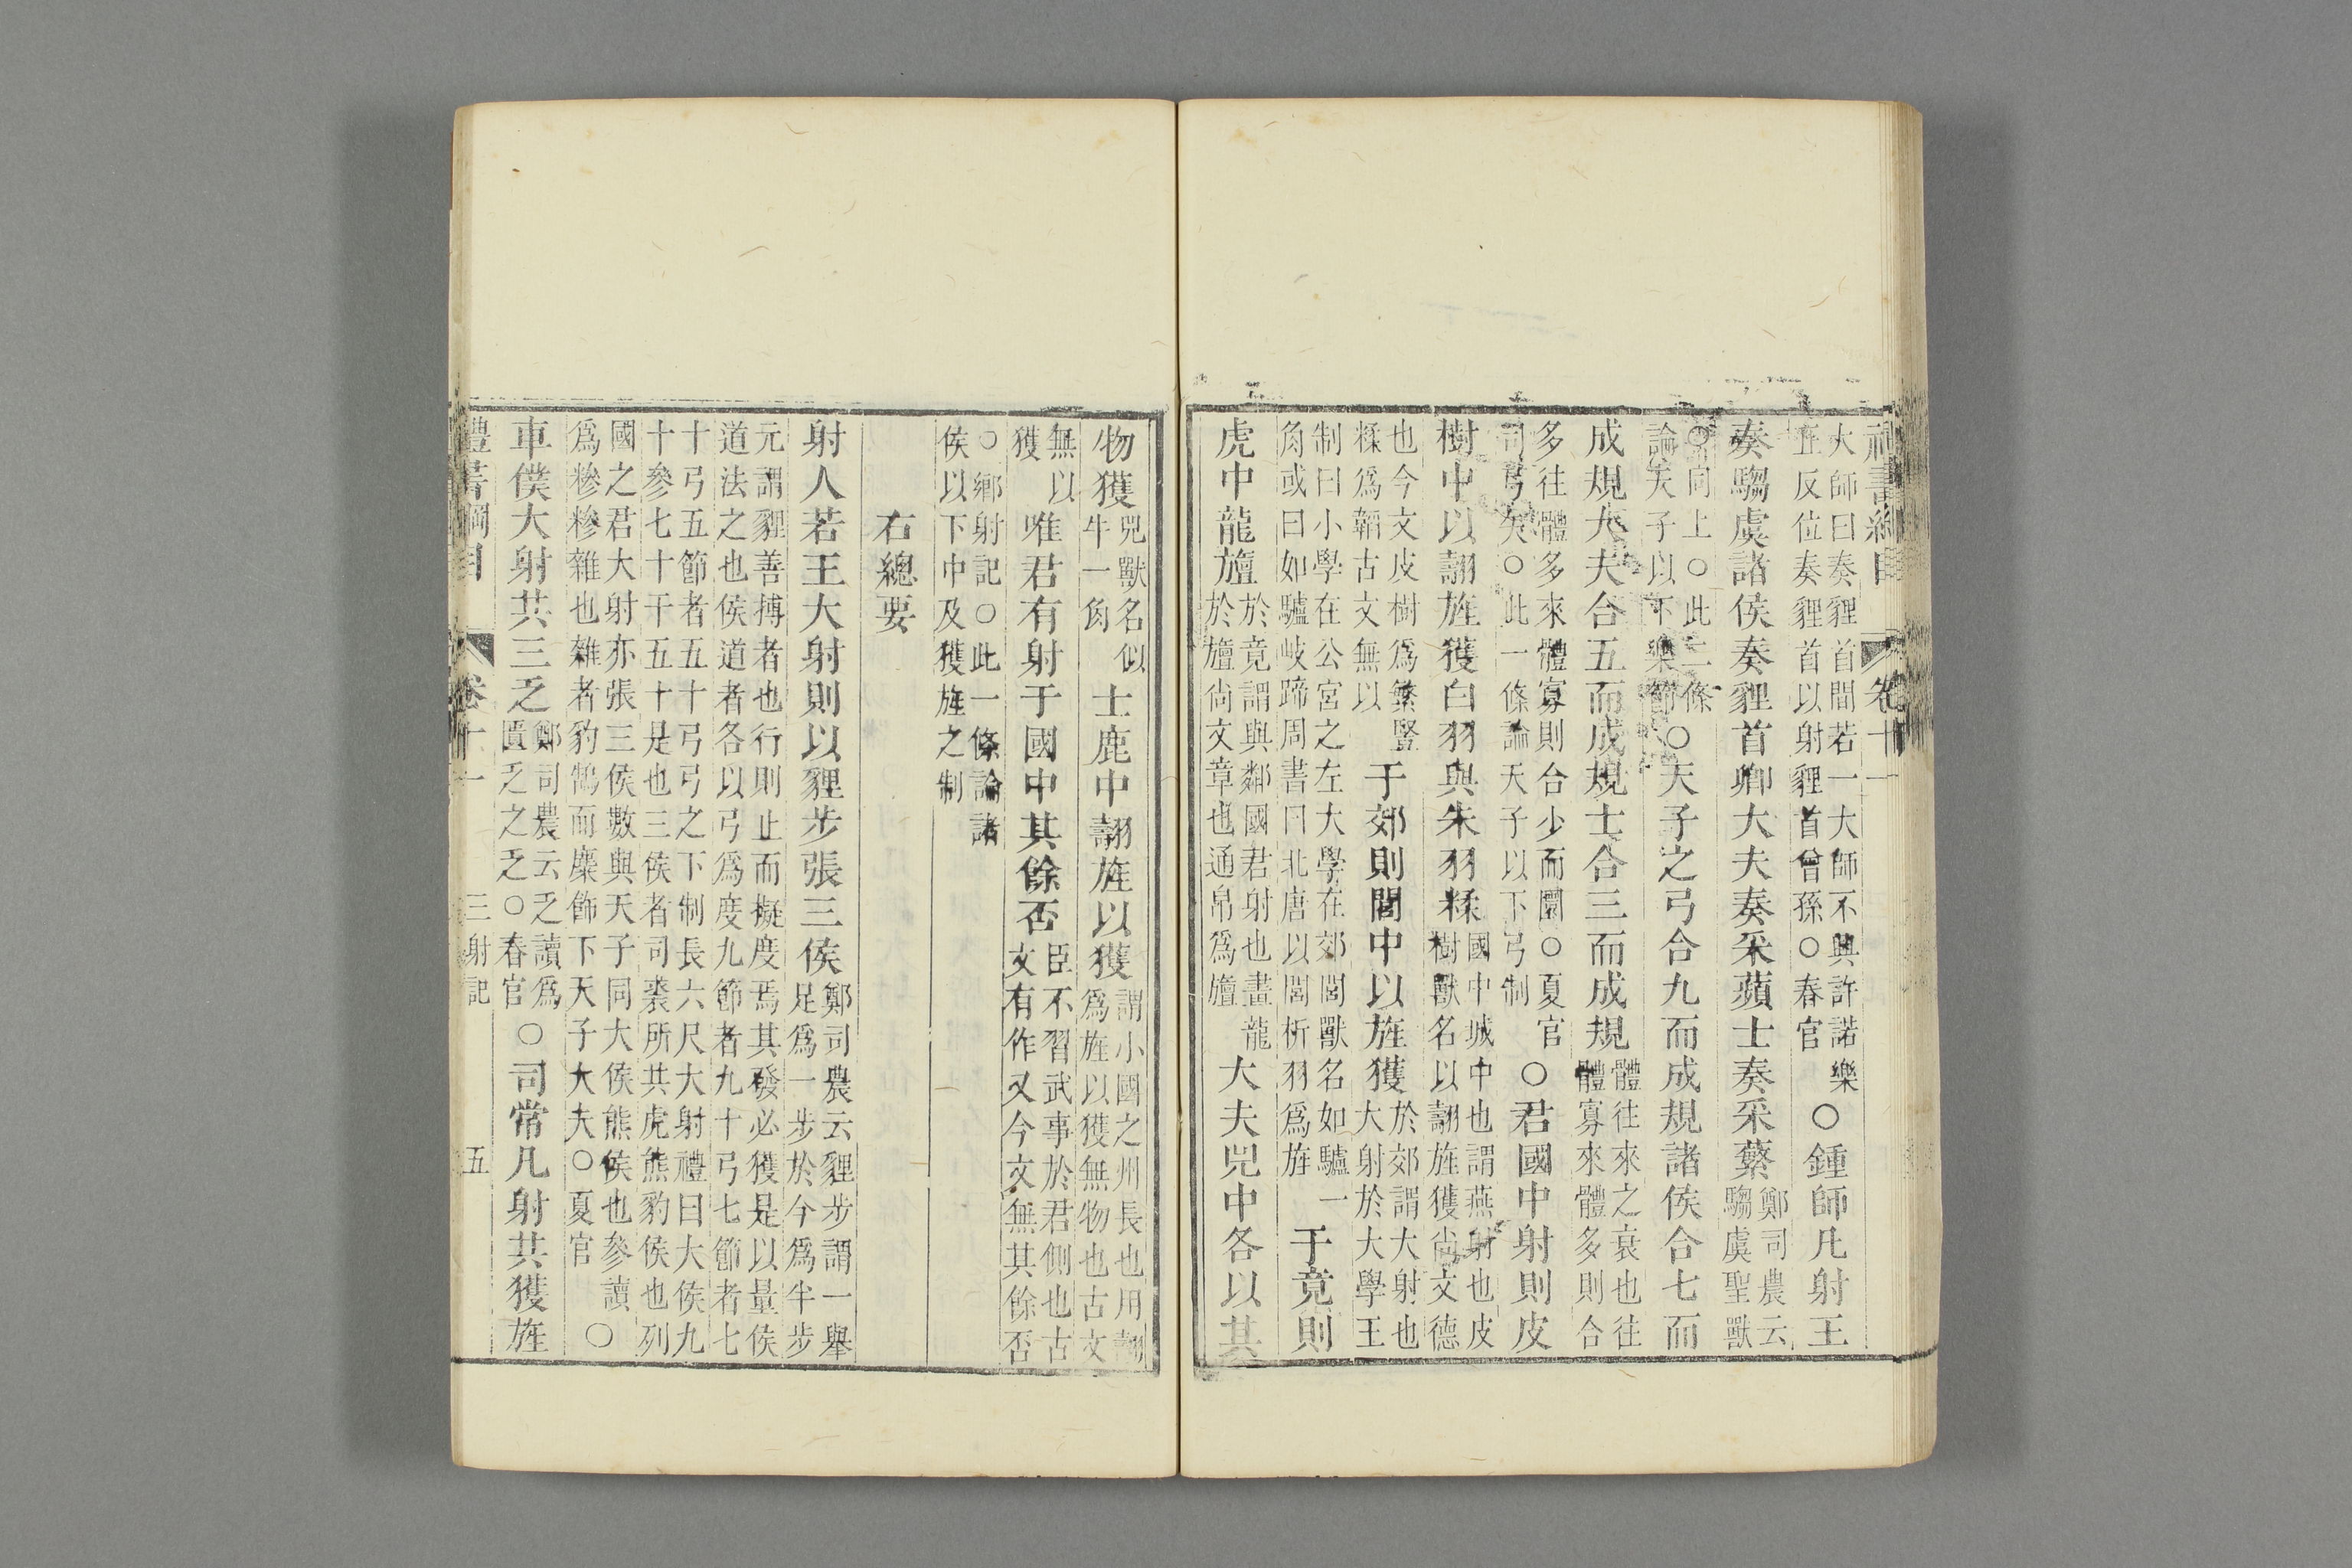 禮書綱目　卷十一
大師曰奏貍首間若一大師不興許諾樂
正反位奏貍首以射貍首曾孫○春官
○鍾師凡射王
奏騶虞諸侯奏貍首卿大夫奏采蘋士奏采蘩
鄭司農云
騶虞聖獸
○同上○此二條
論天子以下樂節
○天子之弓合九而成規諸侯合七而
成規大夫合五而成規士合三而成規
體往來之衰也往
體寡來體多則合
多往體多來體寡則合少而圜○夏官
司弓矢○此一條論天子以下弓制
○君國中射則皮
樹中以翿旌獲白羽與朱羽糅
國中城中也謂燕射也皮
樹獸名以翿旌獲尚文德
也今文皮樹爲繁豎
糅爲韜古文無以
于郊則閭中以旌獲
於郊謂大射也
大射於大學王
制曰小學在公宮之左大學在郊閭獸名如驢一
角或曰如驢岐蹄周書曰北唐以閭析羽爲旌
于竟則
虎中龍旜
於竟謂與鄰國君射也畫龍
於旜尚文章也通帛爲旜
大夫兕中各以其
物獲
兕獸名似
牛一角
士鹿中翿旌以獲
謂小國之州長也用翿
爲旌以獲無物也古文
無以
獲
唯君有射于國中其餘否
臣不習武事於君側也古
文有作又今文無其餘否
○鄉射記○此一條論諸
侯以下中及獲旌之制
右總要
射人若王大射則以貍步張三侯
鄭司農云貍步謂一舉
足爲一步於今爲半步
元謂貍善搏者也行則止而擬度焉其發必獲是以量侯
道法之也侯道者各以弓爲度九節者九十弓七節者七
十弓五節者五十弓弓之下制長六尺大射禮曰大侯九
十參七十干五十是也三侯者司裘所共虎熊豹侯也列
國之君大射亦張三侯數與天子同大侯熊侯也參讀
爲糝糝雜也雜者豹鵠而麋飾下天子大夫○夏官
○
車僕大射共三乏
鄭司農云乏讀爲
匱乏之乏○春官
○司常凡射共獲旌
禮書綱目　卷十一　三射記　五